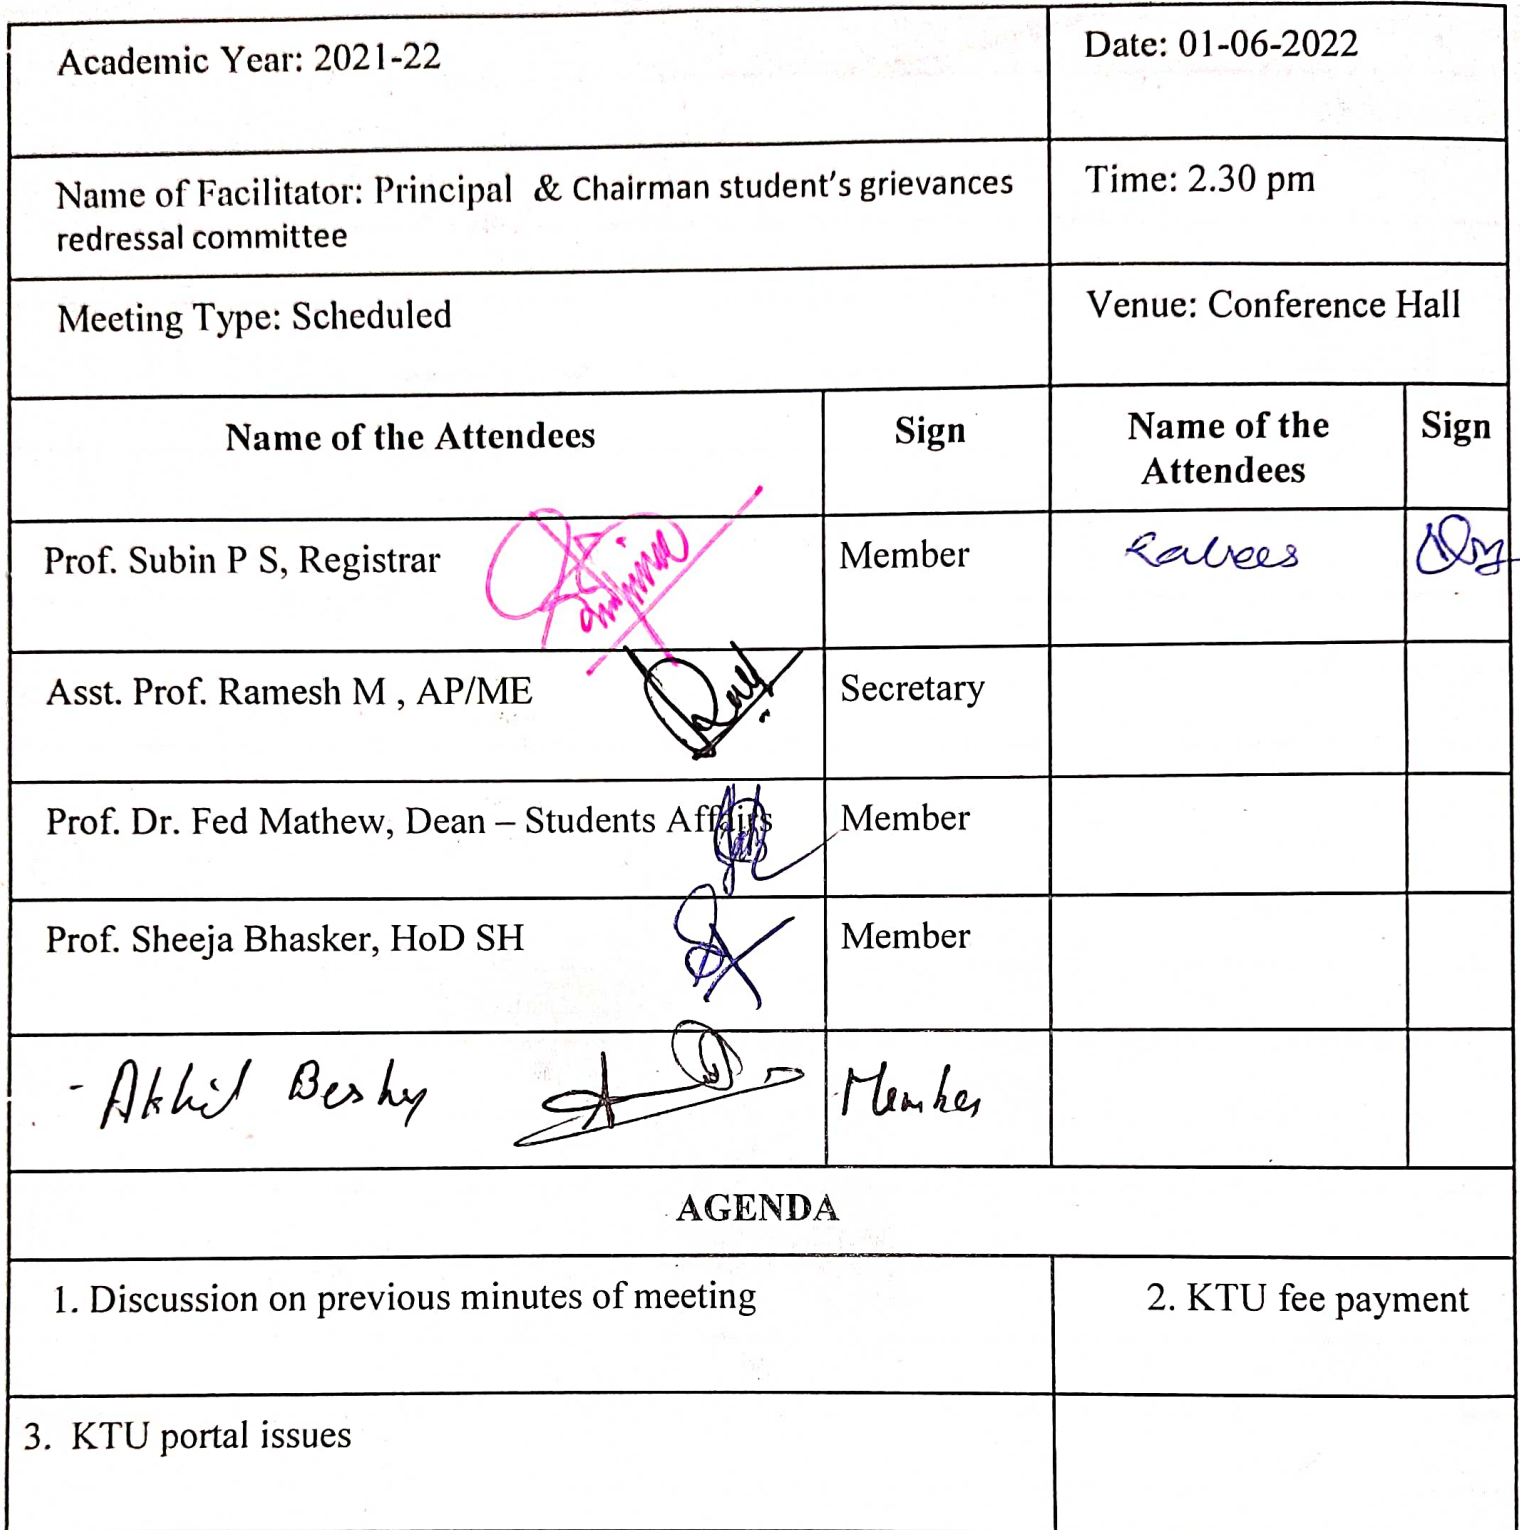 Academic Year: 2021-22
Date: 01-06-2022
Name of Facilitator: Principal & Chairman student's grievances
redressal committee
Time: 2.30 pm
Meeting Type: Scheduled
Venue: Conference Hall
Name of the Attendees
Sign
Name of the
Attendees
Sign
Prof. Subin P S, Registrar
Member
Asst. Prof. Ramesh M , AP/ME
Secretary
Prof. Dr. Fed Mathew, Dean – Students Affairs
Member
Prof. Sheeja Bhasker, HoD SH
Member
- Akhil
Member
AGENDA
1. Discussion on previous minutes of meeting
2. KTU fee payment
3. KTU portal issues